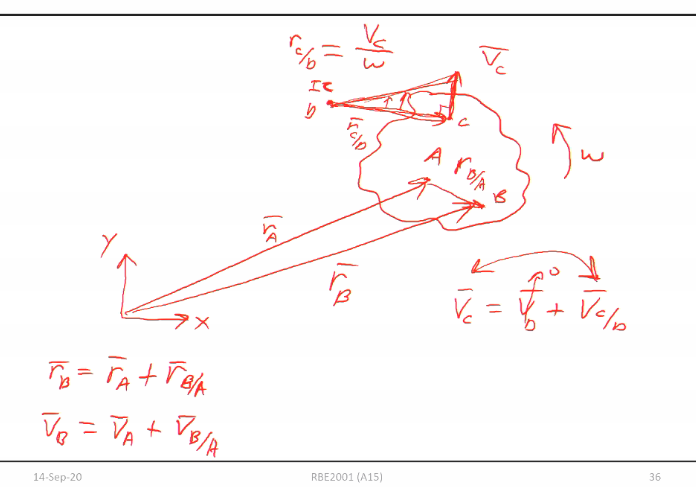 r_{C/D} = V_C / ω
V̄_C
IC
D
r̄_{C/D}
C
A
r_{B/A}
B
ω
r̄_A
r̄_B
Y
X
V̄_C = V̄_D + V̄_{C/D}
0
r̄_B = r̄_A + r̄_{B/A}
V̄_B = V̄_A + V̄_{B/A}
14-Sep-20
RBE2001 (A15)
36